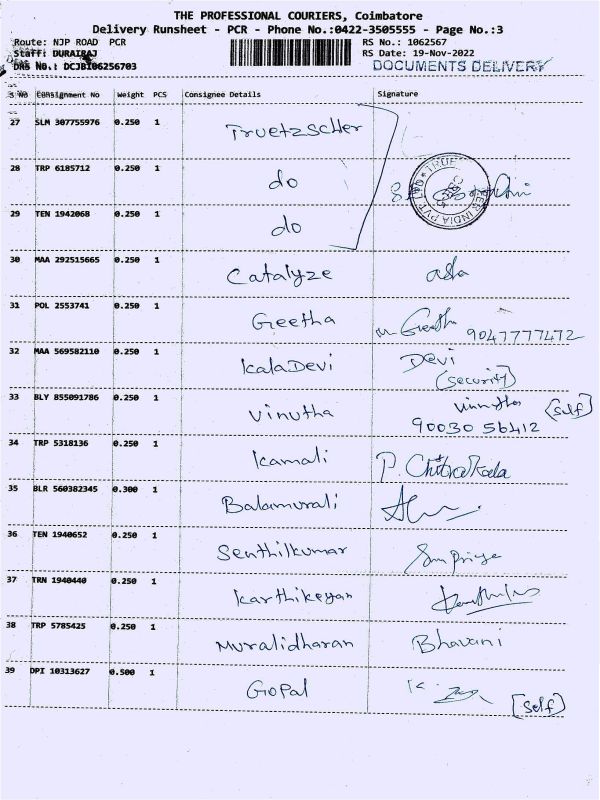 THE PROFESSIONAL COURIERS, Coimbatore
Delivery Runsheet - PCR - Phone No.:0422-3505555 - Page No.:3
Route: NJP ROAD PCR RS No.: 1062567
Staff: DURAIRAJ RS Date: 19-Nov-2022
DRS No.: DCJBI06256703 DOCUMENTS DELIVERY
S No Consignment No Weight PCS Consignee Details Signature
27 SLM 307755976 0.250 1 Truetzscher
28 TRP 6185712 0.250 1 do
TRUE
INDIA PVT LTD
29 TEN 1942068 0.250 1 do
30 MAA 292515665 0.250 1 Catalyze
31 POL 2553741 0.250 1 Geetha M. Geetha 9047777472
32 MAA 569582110 0.250 1 KalaDevi Devi
(security)
33 BLY 855091786 0.250 1 Vinutha Vinutha [self]
90030 56412
34 TRP 5318136 0.250 1 Kamali P. Chitrakala
35 BLR 560382345 0.300 1 Balamurali
36 TEN 1940652 0.250 1 Senthilkumar
37 TRN 1940440 0.250 1 Karthikeyan
38 TRP 5785425 0.250 1 Muralidharan Bhavani
39 DPI 10313627 0.500 1 Gopal K. [self]